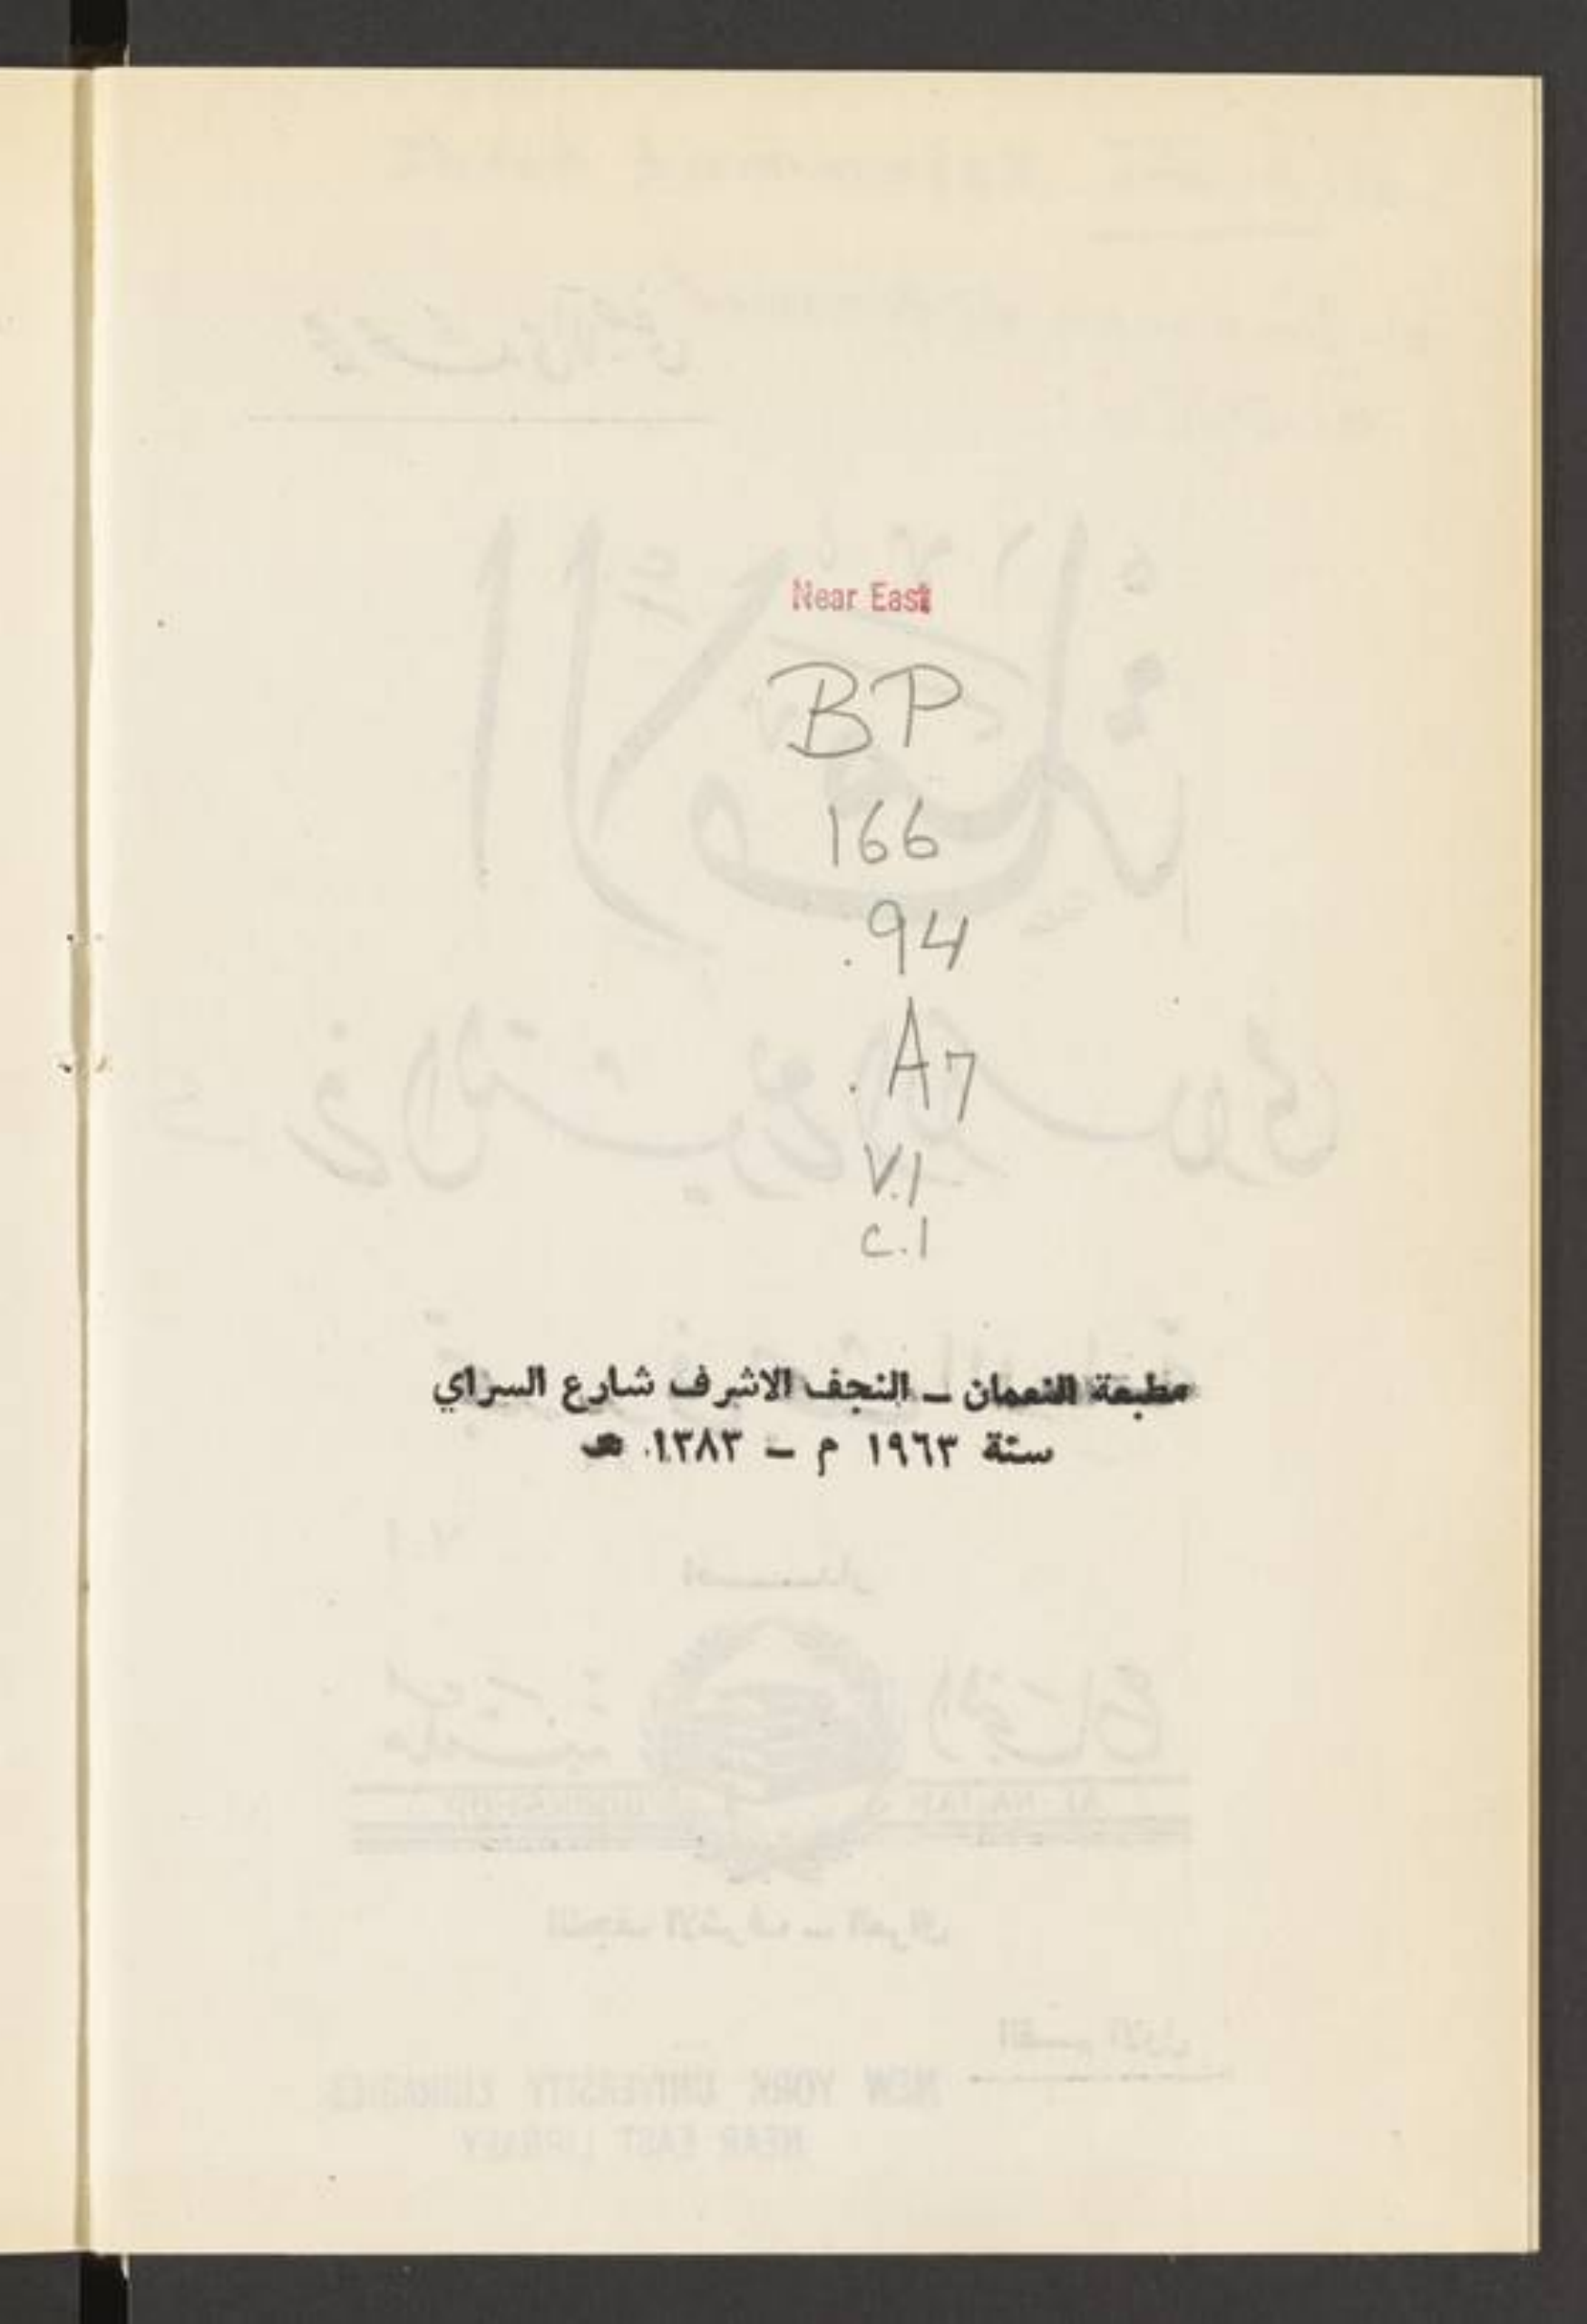 Near East
BP
166
.94
.A7
V.1
C.1
مطبعة النعمان – النجف الاشرف شارع السراي
سنة ١٩٦٣ م – ١٣٨٣ هـ